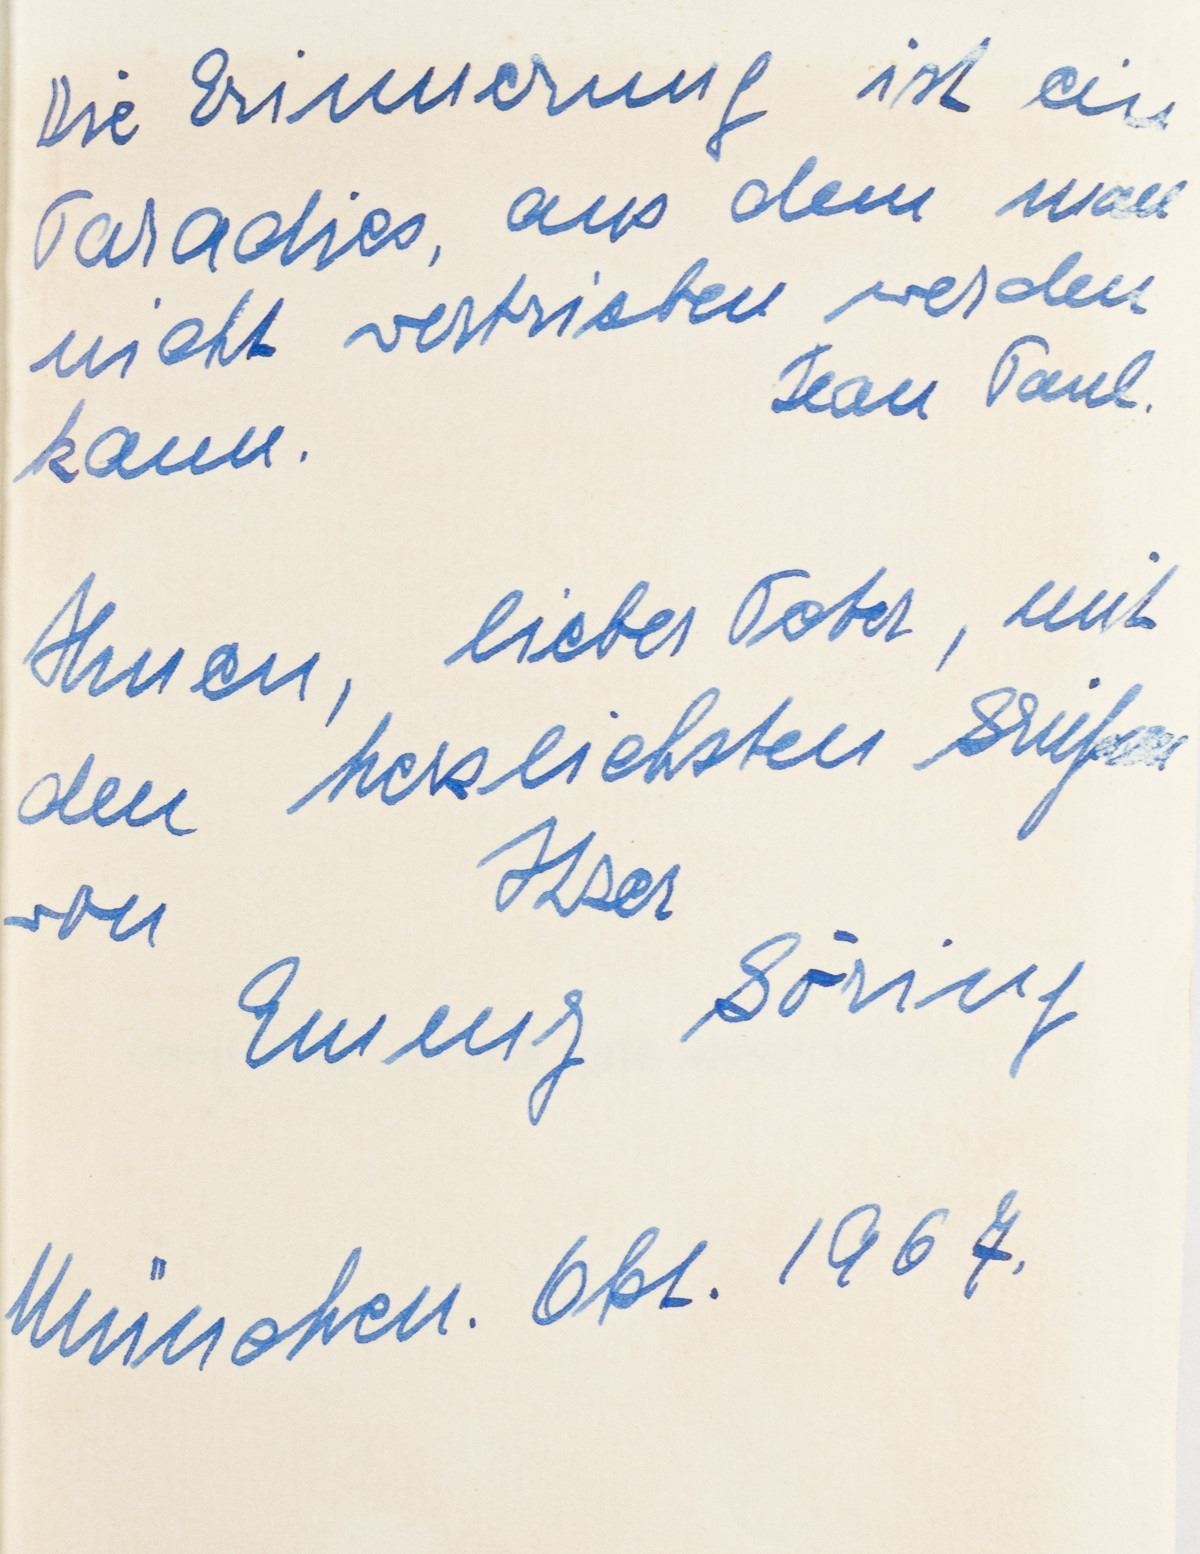 Die Erinnerung ist ein
Paradies, aus dem man
nicht vertrieben werden
kann. Jean Paul.
Ihnen, lieber Pater, mit
den herzlichsten Grüßen
von Ihrer
Emmy Göring
München. Okt. 1967.